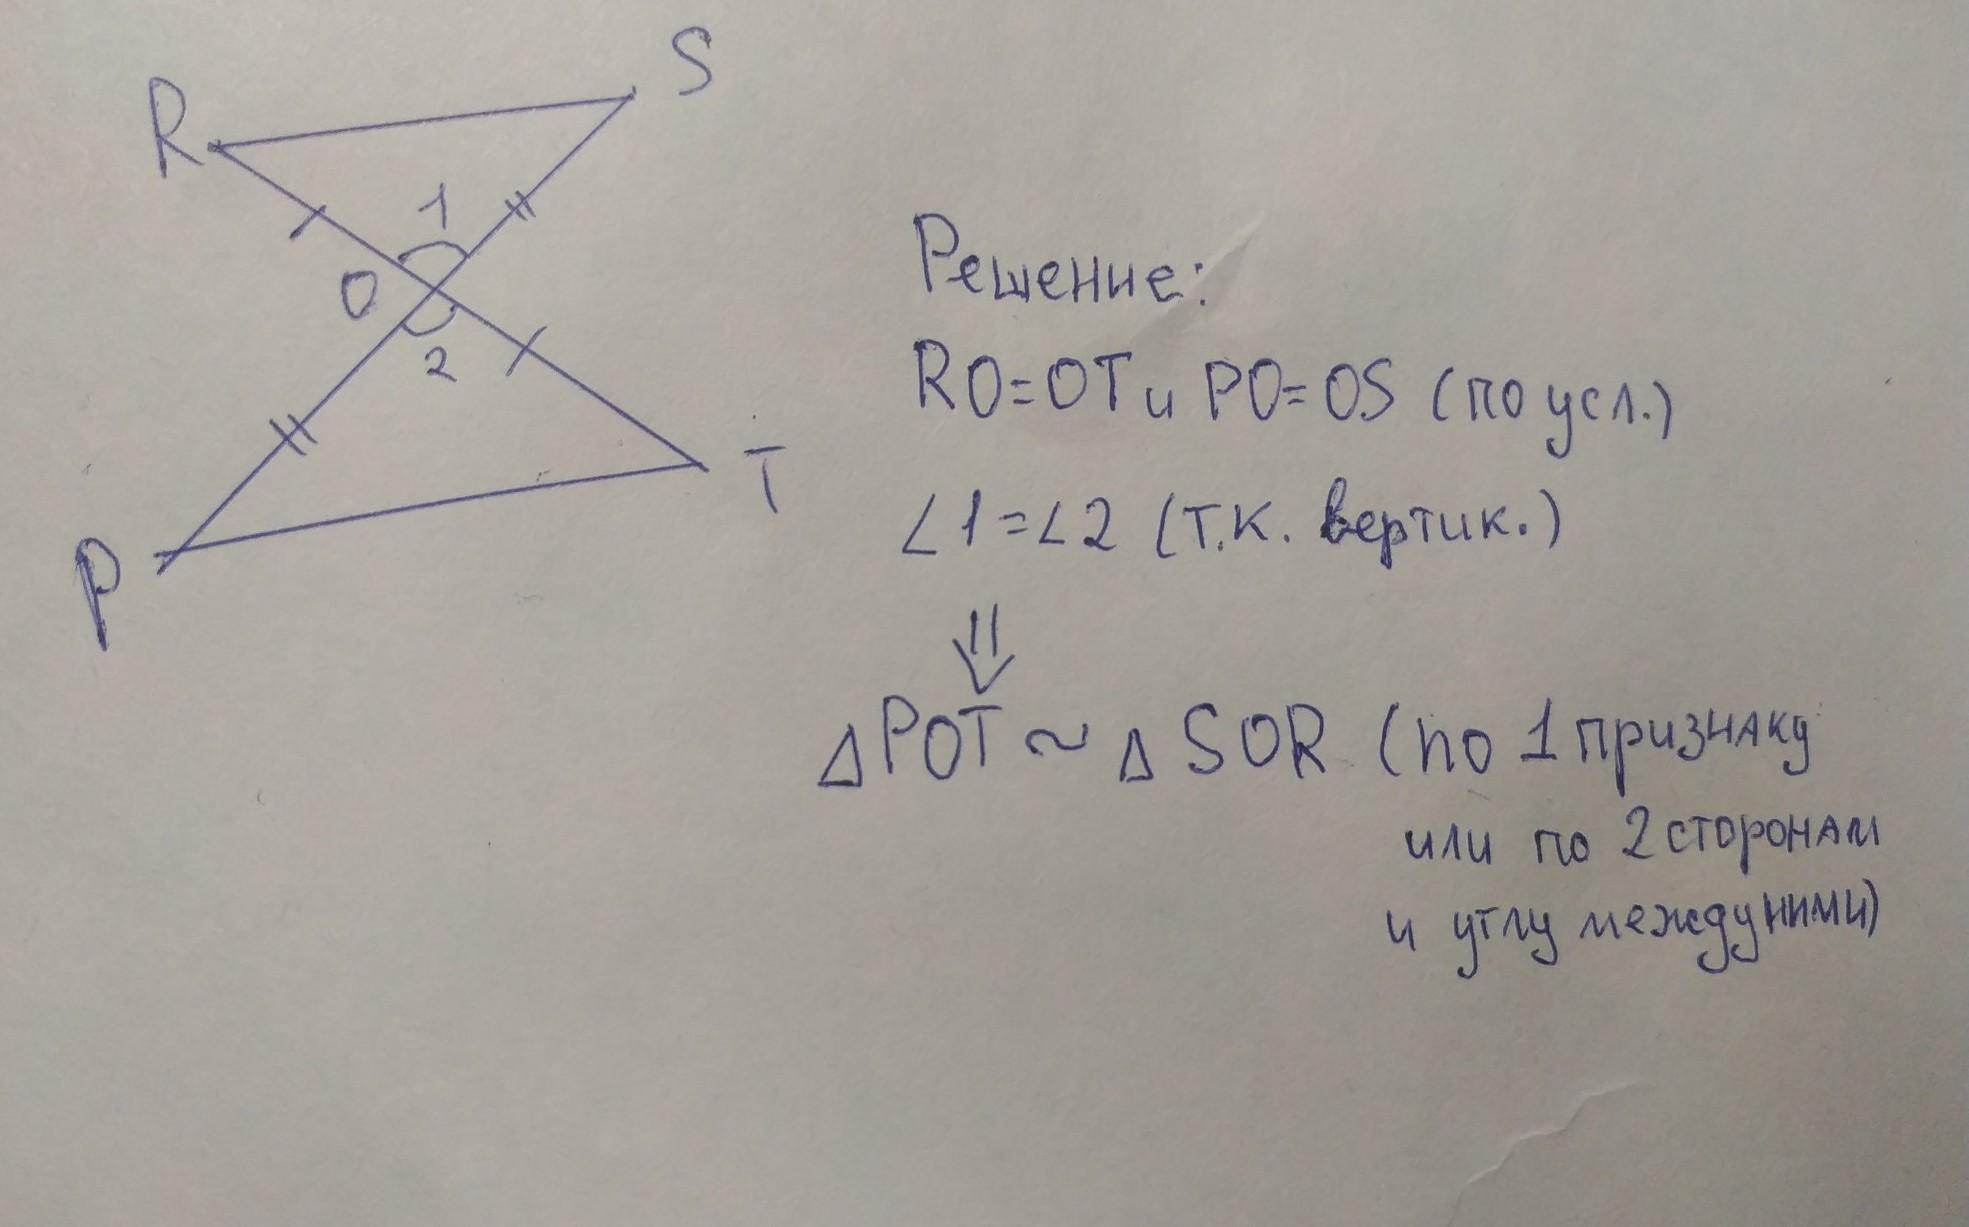 R
S
1
O
2
T
P
Решение:
RO=OT и PO=OS (по усл.)
∠1=∠2 (т.к. вертик.)
⇓
△POT ~ △SOR (по 1 признаку
или по 2 сторонам
и углу между ними)